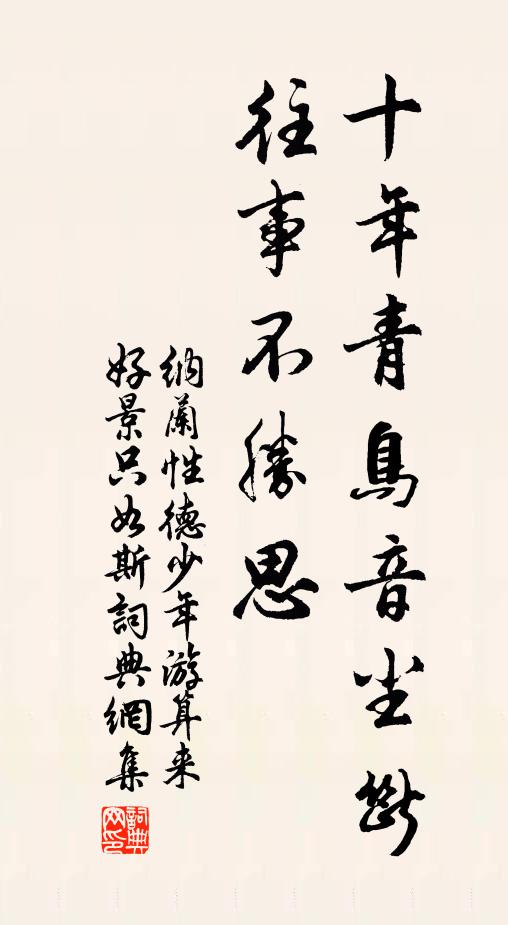 十年青鳥音尘斷
往事不勝思
纳蘭性德少年游算来
好景只如斯詞典網集
詞典
网印